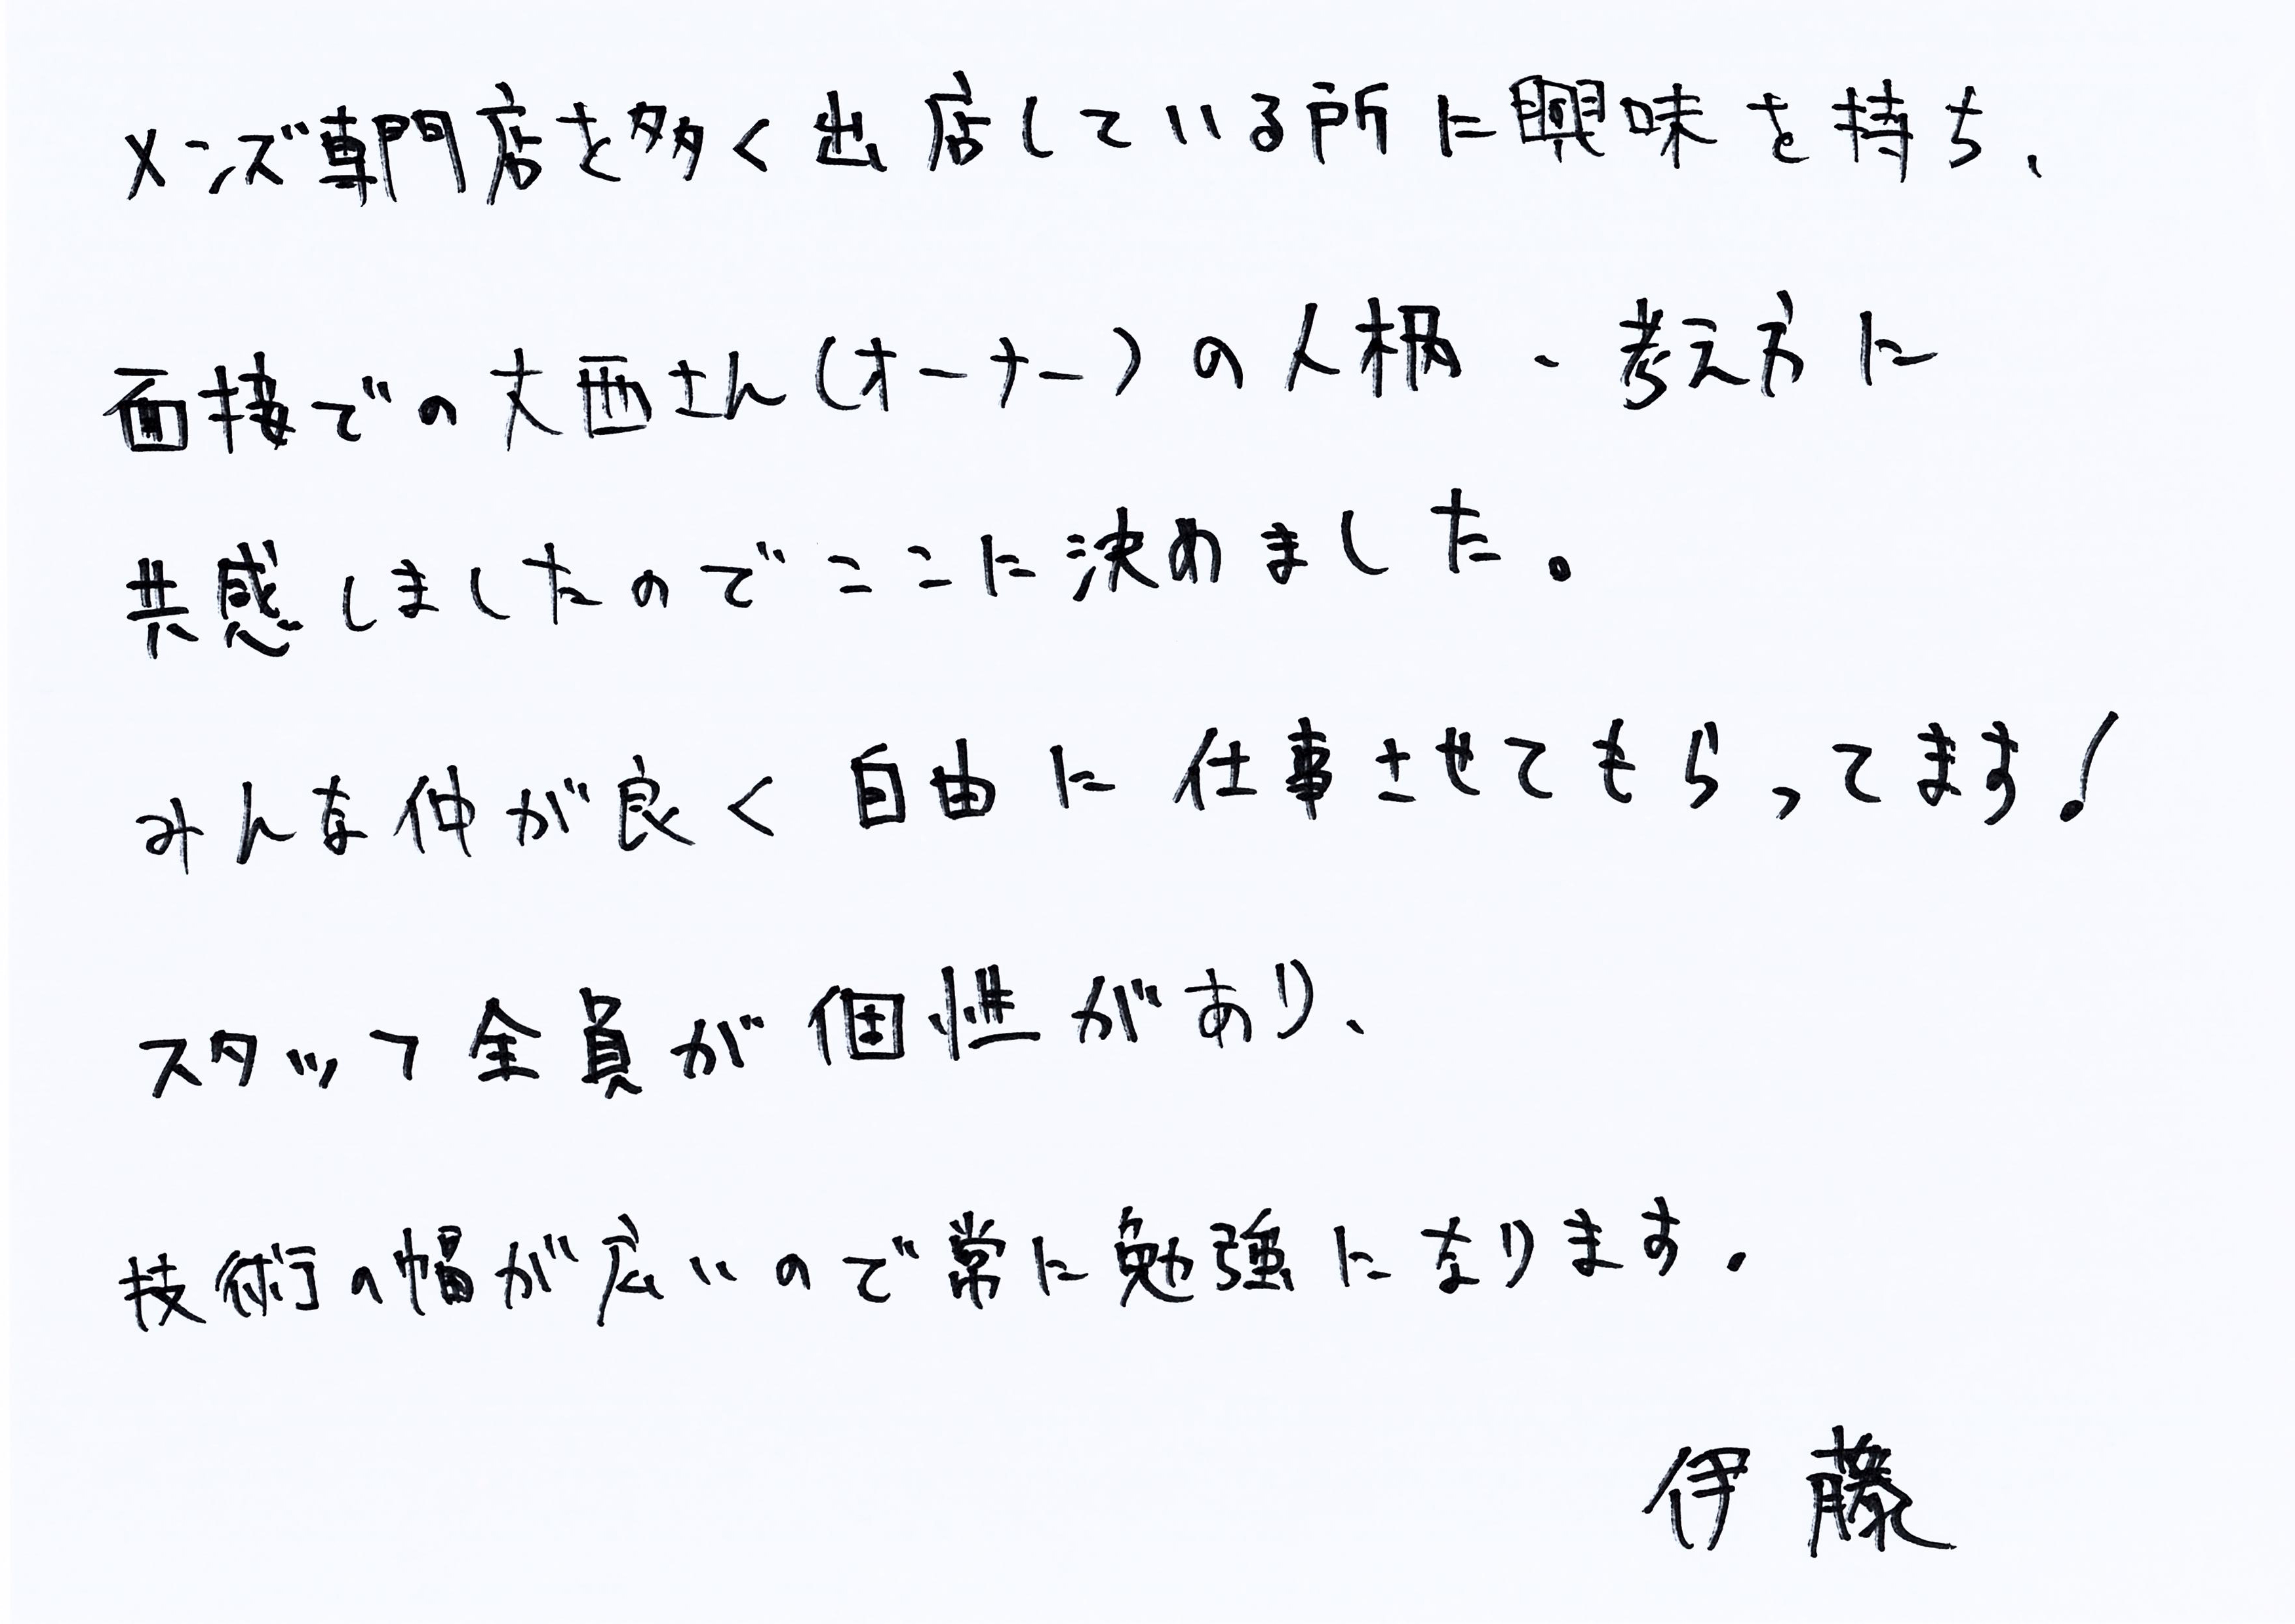 メンズ専門店を多く出店している所に興味を持ち、
面接での大西さん(オーナー)の人柄、考え方に
共感しましたのでここに決めました。
みんな仲が良く自由に仕事させてもらってます!
スタッフ全員が個性があり、
技術の幅が広いので常に勉強になります。
伊藤